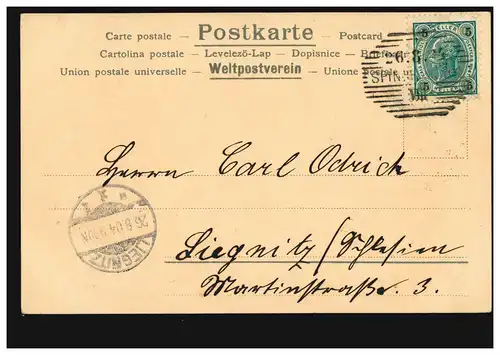 Postkarte
Carte postale — Postcard
Cartolina postale — Levelező-Lap — Dopisnice —
Union postale universelle — Weltpostverein — Unione postale
5 5
26.8.
SPIN
Herrn Carl Odrich
Liegnitz / Schlesien
Martinstraße. 3.
LIEGNITZ
26.8.04